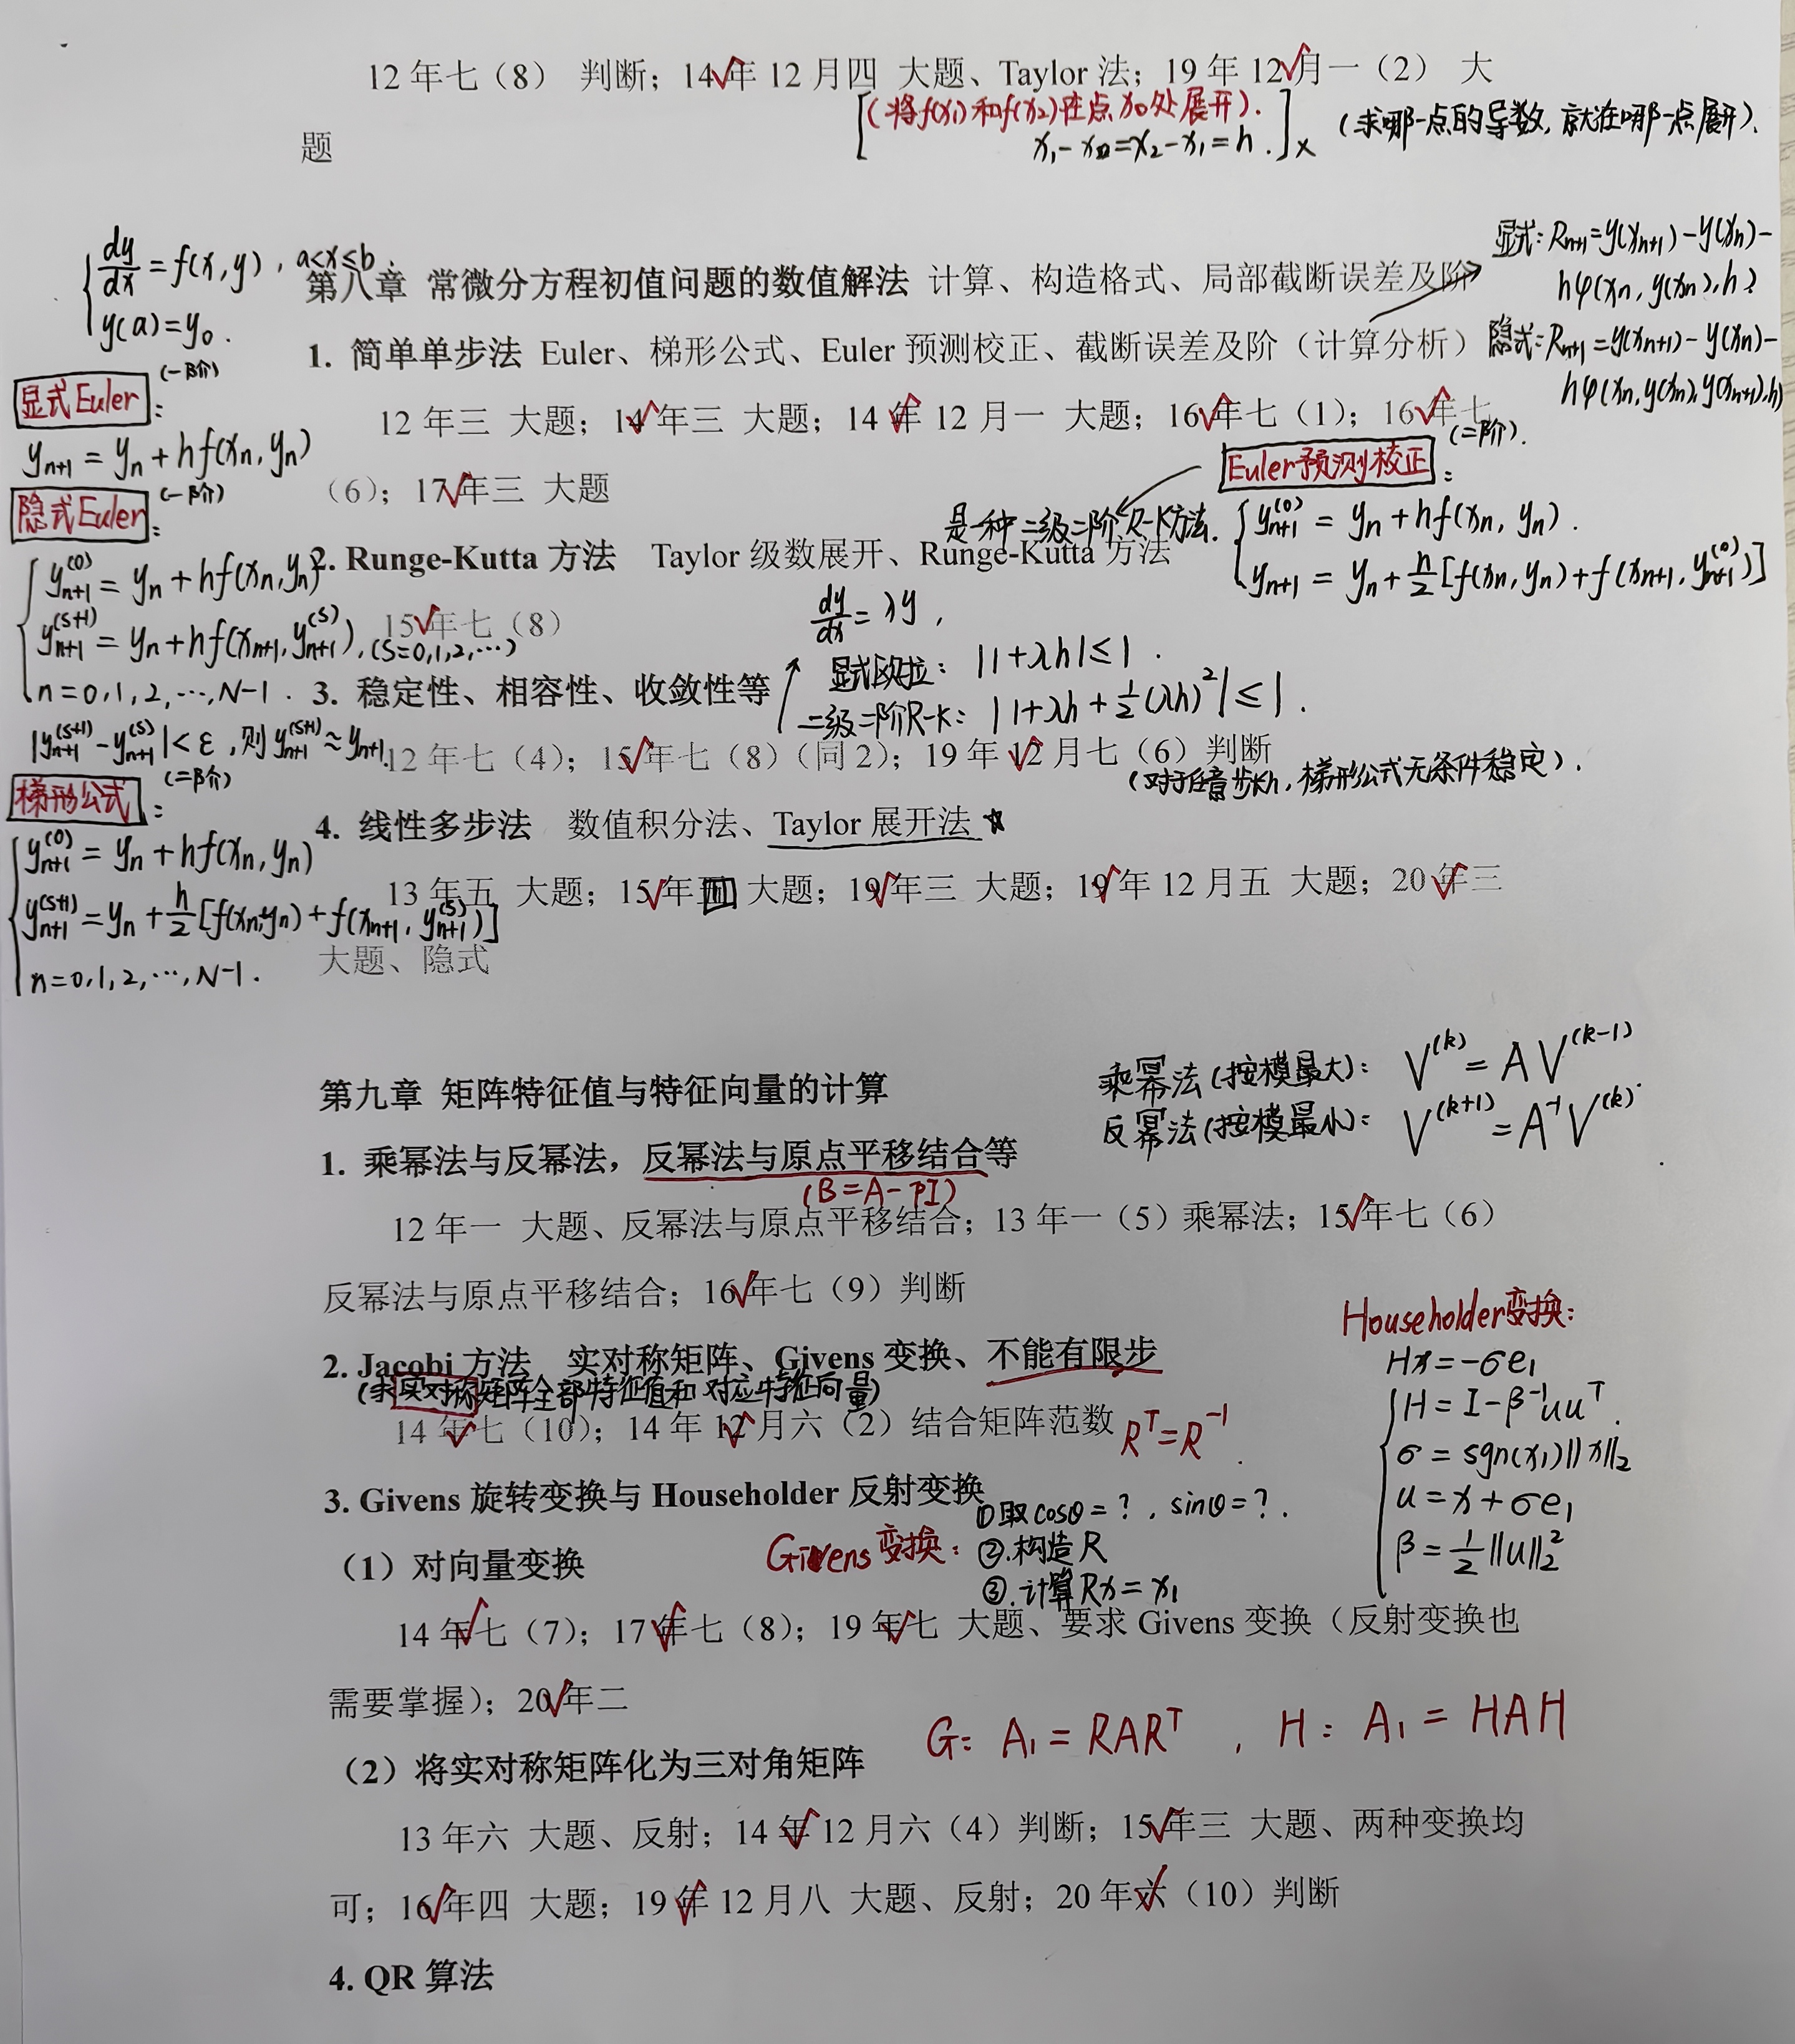 12 年七（8） 判断；14 年 12 月四 大题、Taylor 法；19 年 12 月一（2） 大
题
[(将f(x₁)和f(x₂)在点x₀处展开).
x₁-x₀=x₂-x₁=h.]×
(求哪一点的导数,就在哪一点展开).
dy/dx=f(x,y), a<x≤b.
y(a)=y₀.
第八章 常微分方程初值问题的数值解法 计算、构造格式、局部截断误差及阶
显式:Rₙ₊₁=y(xₙ₊₁)-y(xₙ)-
hφ(xₙ,y(xₙ),h)
隐式:Rₙ₊₁=y(xₙ₊₁)-y(xₙ)-
hφ(xₙ,y(xₙ),y(xₙ₊₁),h)
1. 简单单步法 Euler、梯形公式、Euler 预测校正、截断误差及阶（计算分析）
12 年三 大题；14 年三 大题；14 年 12 月一 大题；16 年七（1）；16 年七
（6）；17 年三 大题
显式Euler: (一阶)
yₙ₊₁=yₙ+hf(xₙ,yₙ)
隐式Euler: (一阶)
yₙ₊₁⁽⁰⁾=yₙ+hf(xₙ,yₙ)
yₙ₊₁⁽ˢ⁺¹⁾=yₙ+hf(xₙ₊₁,yₙ₊₁⁽ˢ⁾),(s=0,1,2,…)
n=0,1,2,…,N-1.
|yₙ₊₁⁽ˢ⁺¹⁾-yₙ₊₁⁽ˢ⁾|<ε,则yₙ₊₁⁽ˢ⁺¹⁾≈yₙ₊₁.
梯形公式: (二阶)
yₙ₊₁⁽⁰⁾=yₙ+hf(xₙ,yₙ)
yₙ₊₁⁽ˢ⁺¹⁾=yₙ+h/2[f(xₙ,yₙ)+f(xₙ₊₁,yₙ₊₁⁽ˢ⁾)]
n=0,1,2,…,N-1.
Euler预测校正: (二阶).
是一种二级二阶R-K方法.
yₙ₊₁⁽⁰⁾=yₙ+hf(xₙ,yₙ).
yₙ₊₁=yₙ+h/2[f(xₙ,yₙ)+f(xₙ₊₁,yₙ₊₁⁽⁰⁾)]
2. Runge-Kutta 方法 Taylor 级数展开、Runge-Kutta 方法
15 年七（8）
dy/dx=λy,
显式欧拉: |1+λh|≤1.
二级二阶R-K: |1+λh+1/2(λh)²|≤1.
3. 稳定性、相容性、收敛性等
12 年七（4）；15 年七（8）（同 2）；19 年 12 月七（6）判断
(对于任意步长h,梯形公式无条件稳定).
4. 线性多步法 数值积分法、Taylor 展开法 ☆
13 年五 大题；15 年四 大题；19 年三 大题；19 年 12 月五 大题；20 年三
大题、隐式
第九章 矩阵特征值与特征向量的计算
乘幂法(按模最大): V⁽ᵏ⁾=AV⁽ᵏ⁻¹⁾
反幂法(按模最小): V⁽ᵏ⁺¹⁾=A⁻¹V⁽ᵏ⁾.
1. 乘幂法与反幂法，反幂法与原点平移结合等
(B=A-PI)
12 年一 大题、反幂法与原点平移结合；13 年一（5）乘幂法；15 年七（6）
反幂法与原点平移结合；16 年七（9）判断
2. Jacobi 方法 实对称矩阵、Givens 变换、不能有限步
(求实对称矩阵全部特征值和对应特征向量)
14 年七（10）；14 年 12 月六（2）结合矩阵范数
Rᵀ=R⁻¹.
Householder变换:
Hx=-σe₁
H=I-β⁻¹uuᵀ.
σ=sgn(x₁)||x||₂
u=x+σe₁
β=1/2||u||₂²
3. Givens 旋转变换与 Householder 反射变换
Givens变换:
①取cosθ=?,sinθ=?.
②.构造R
③.计算Rx=x₁
（1）对向量变换
14 年七（7）；17 年七（8）；19 年七 大题、要求 Givens 变换（反射变换也
需要掌握）；20 年二
（2）将实对称矩阵化为三对角矩阵
G: A₁=RARᵀ, H: A₁=HAH
13 年六 大题、反射；14 年 12 月六（4）判断；15 年三 大题、两种变换均
可；16 年四 大题；19 年 12 月八 大题、反射；20 年六（10）判断
4. QR 算法